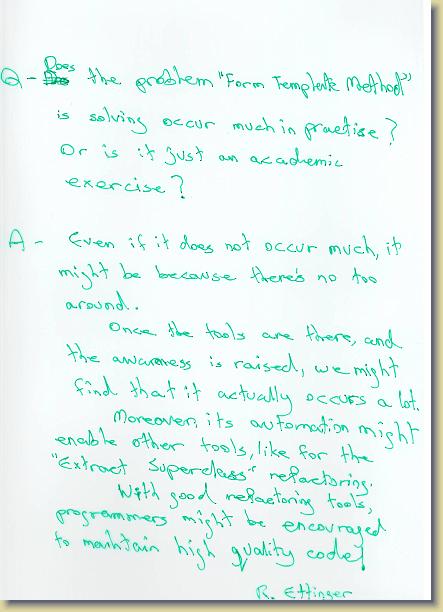 Q - Does the problem "Form Template Method"
is solving occur much in practise?
Or is it just an academic
exercise?
A - Even if it does not occur much, it
might be because there's no too
around.
Once the tools are there, and
the awareness is raised, we might
find that it actually occurs a lot.
Moreover, its automation might
enable other tools, like for the
"Extract Superclass" refactoring.
With good refactoring tools,
programmers might be encouraged
to maintain high quality code!
R. Ettinger